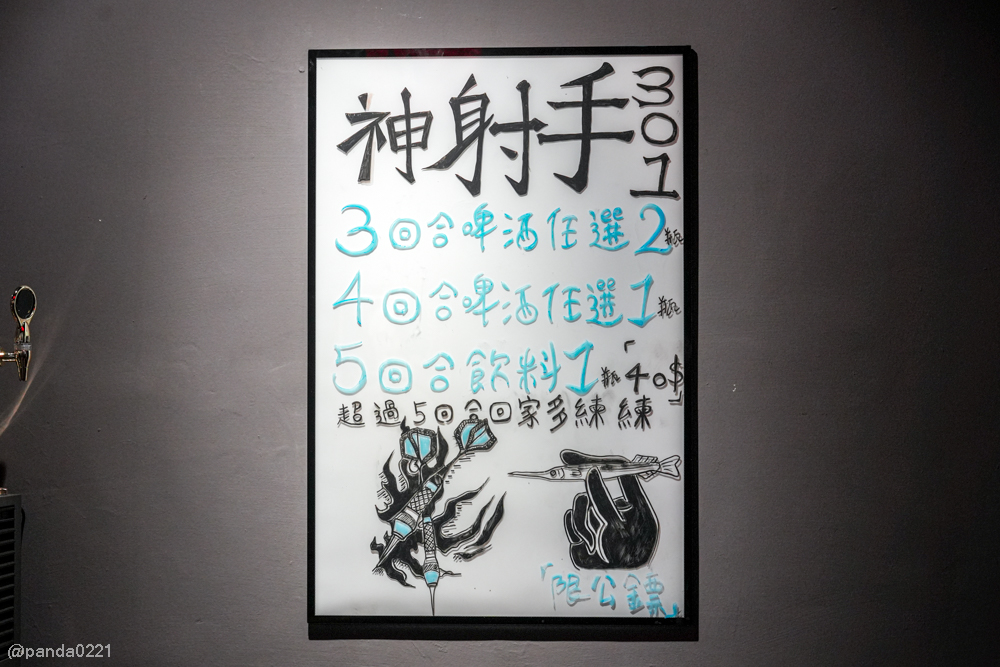 神射手301
3回合啤酒任選2瓶
4回合啤酒任選1瓶
5回合飲料1瓶「40$」
超過5回合回家多練練
「限公鏢」
@panda0221